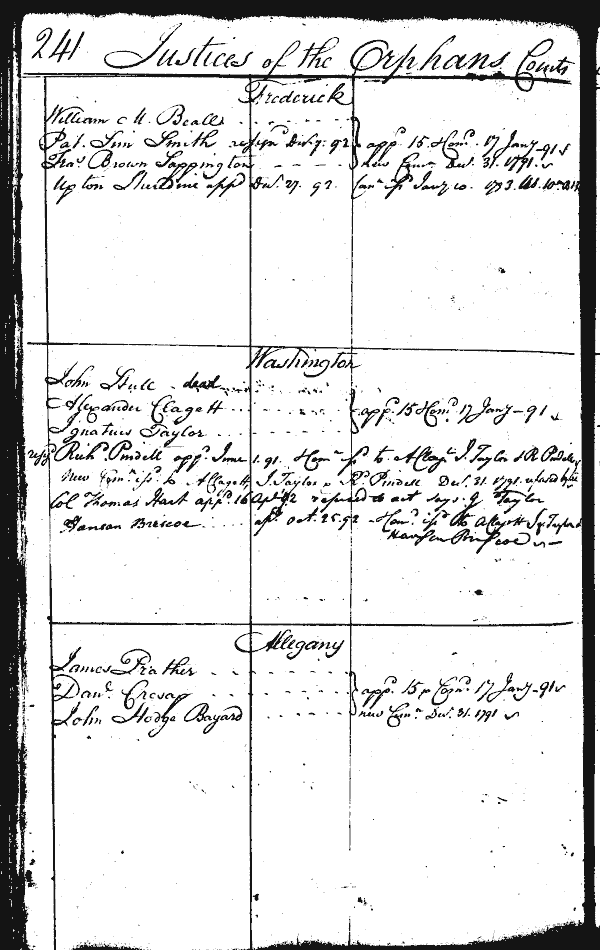 241 Justices of the Orphans Courts
Frederick
William M. Beall
Pat. Sim Smith resign'd Dec. 7. 92 } app'd 15 Com'n 17 Jan'y - 91
Fras Brown Sappington new Com'n Dec. 31. 1791.
Upton app'd Dec. 27. 92. Com'n iss'd Jan'y 10. 1793.
Washington
John Hull dead
Alexander Clagett } app'd 15 Com'n 17 Jan'y - 91
Ignatius Taylor
Rich'd Pindell app'd June 1. 91. Com'n iss'd to A Clagt I. Taylor & R Pindell
New Com'n iss'd to A Clagett, I. Taylor & R. Pindell Dec. 31. 1791.
Col Thomas Hart app'd 16 Apl 92 refused to act says I Taylor
Hanson Briscoe app'd Oct. 25. 92 Com'n iss'd to A Clagett
Hanson Briscoe
Allegany
James Prather
Dan'l Cresap } app'd 15 Com'n 17 Jan'y - 91
John Hodge Bayard new Com'n Dec. 31. 1791